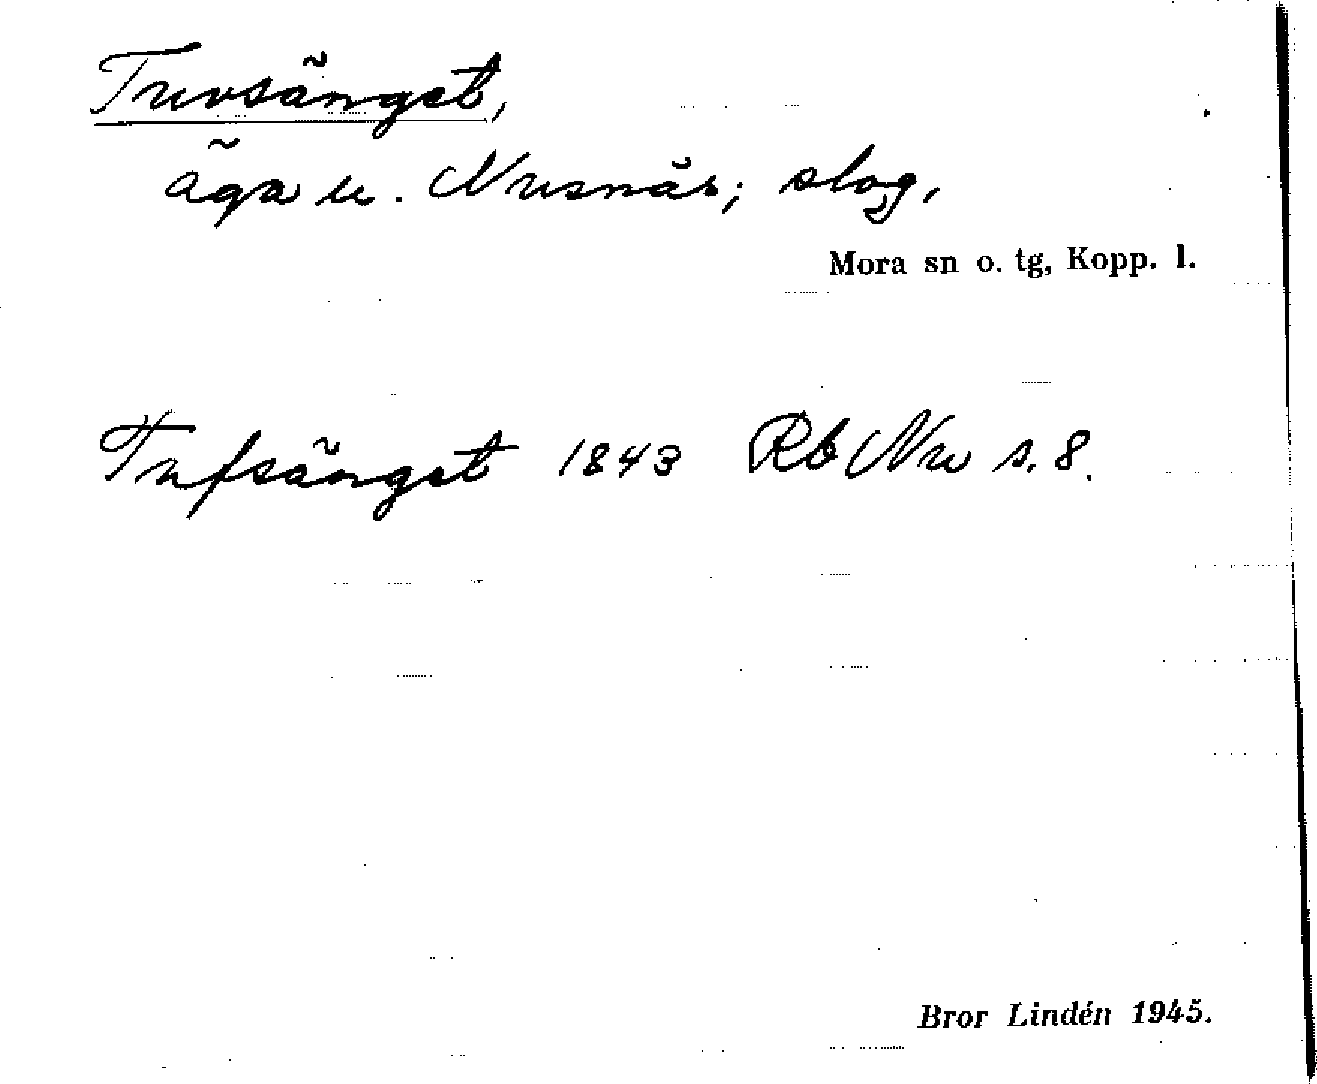 Tuvsänget,
äga u. Nusnäs; slog,
Mora sn o. tg, Kopp. l.
Tufsänget 1843 Rb Nu s. 8.
Bror Lindén 1945.